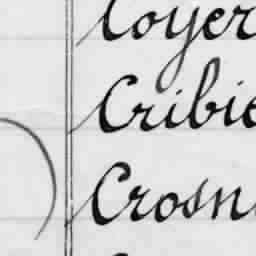 Coyer
Cribie
Crosn